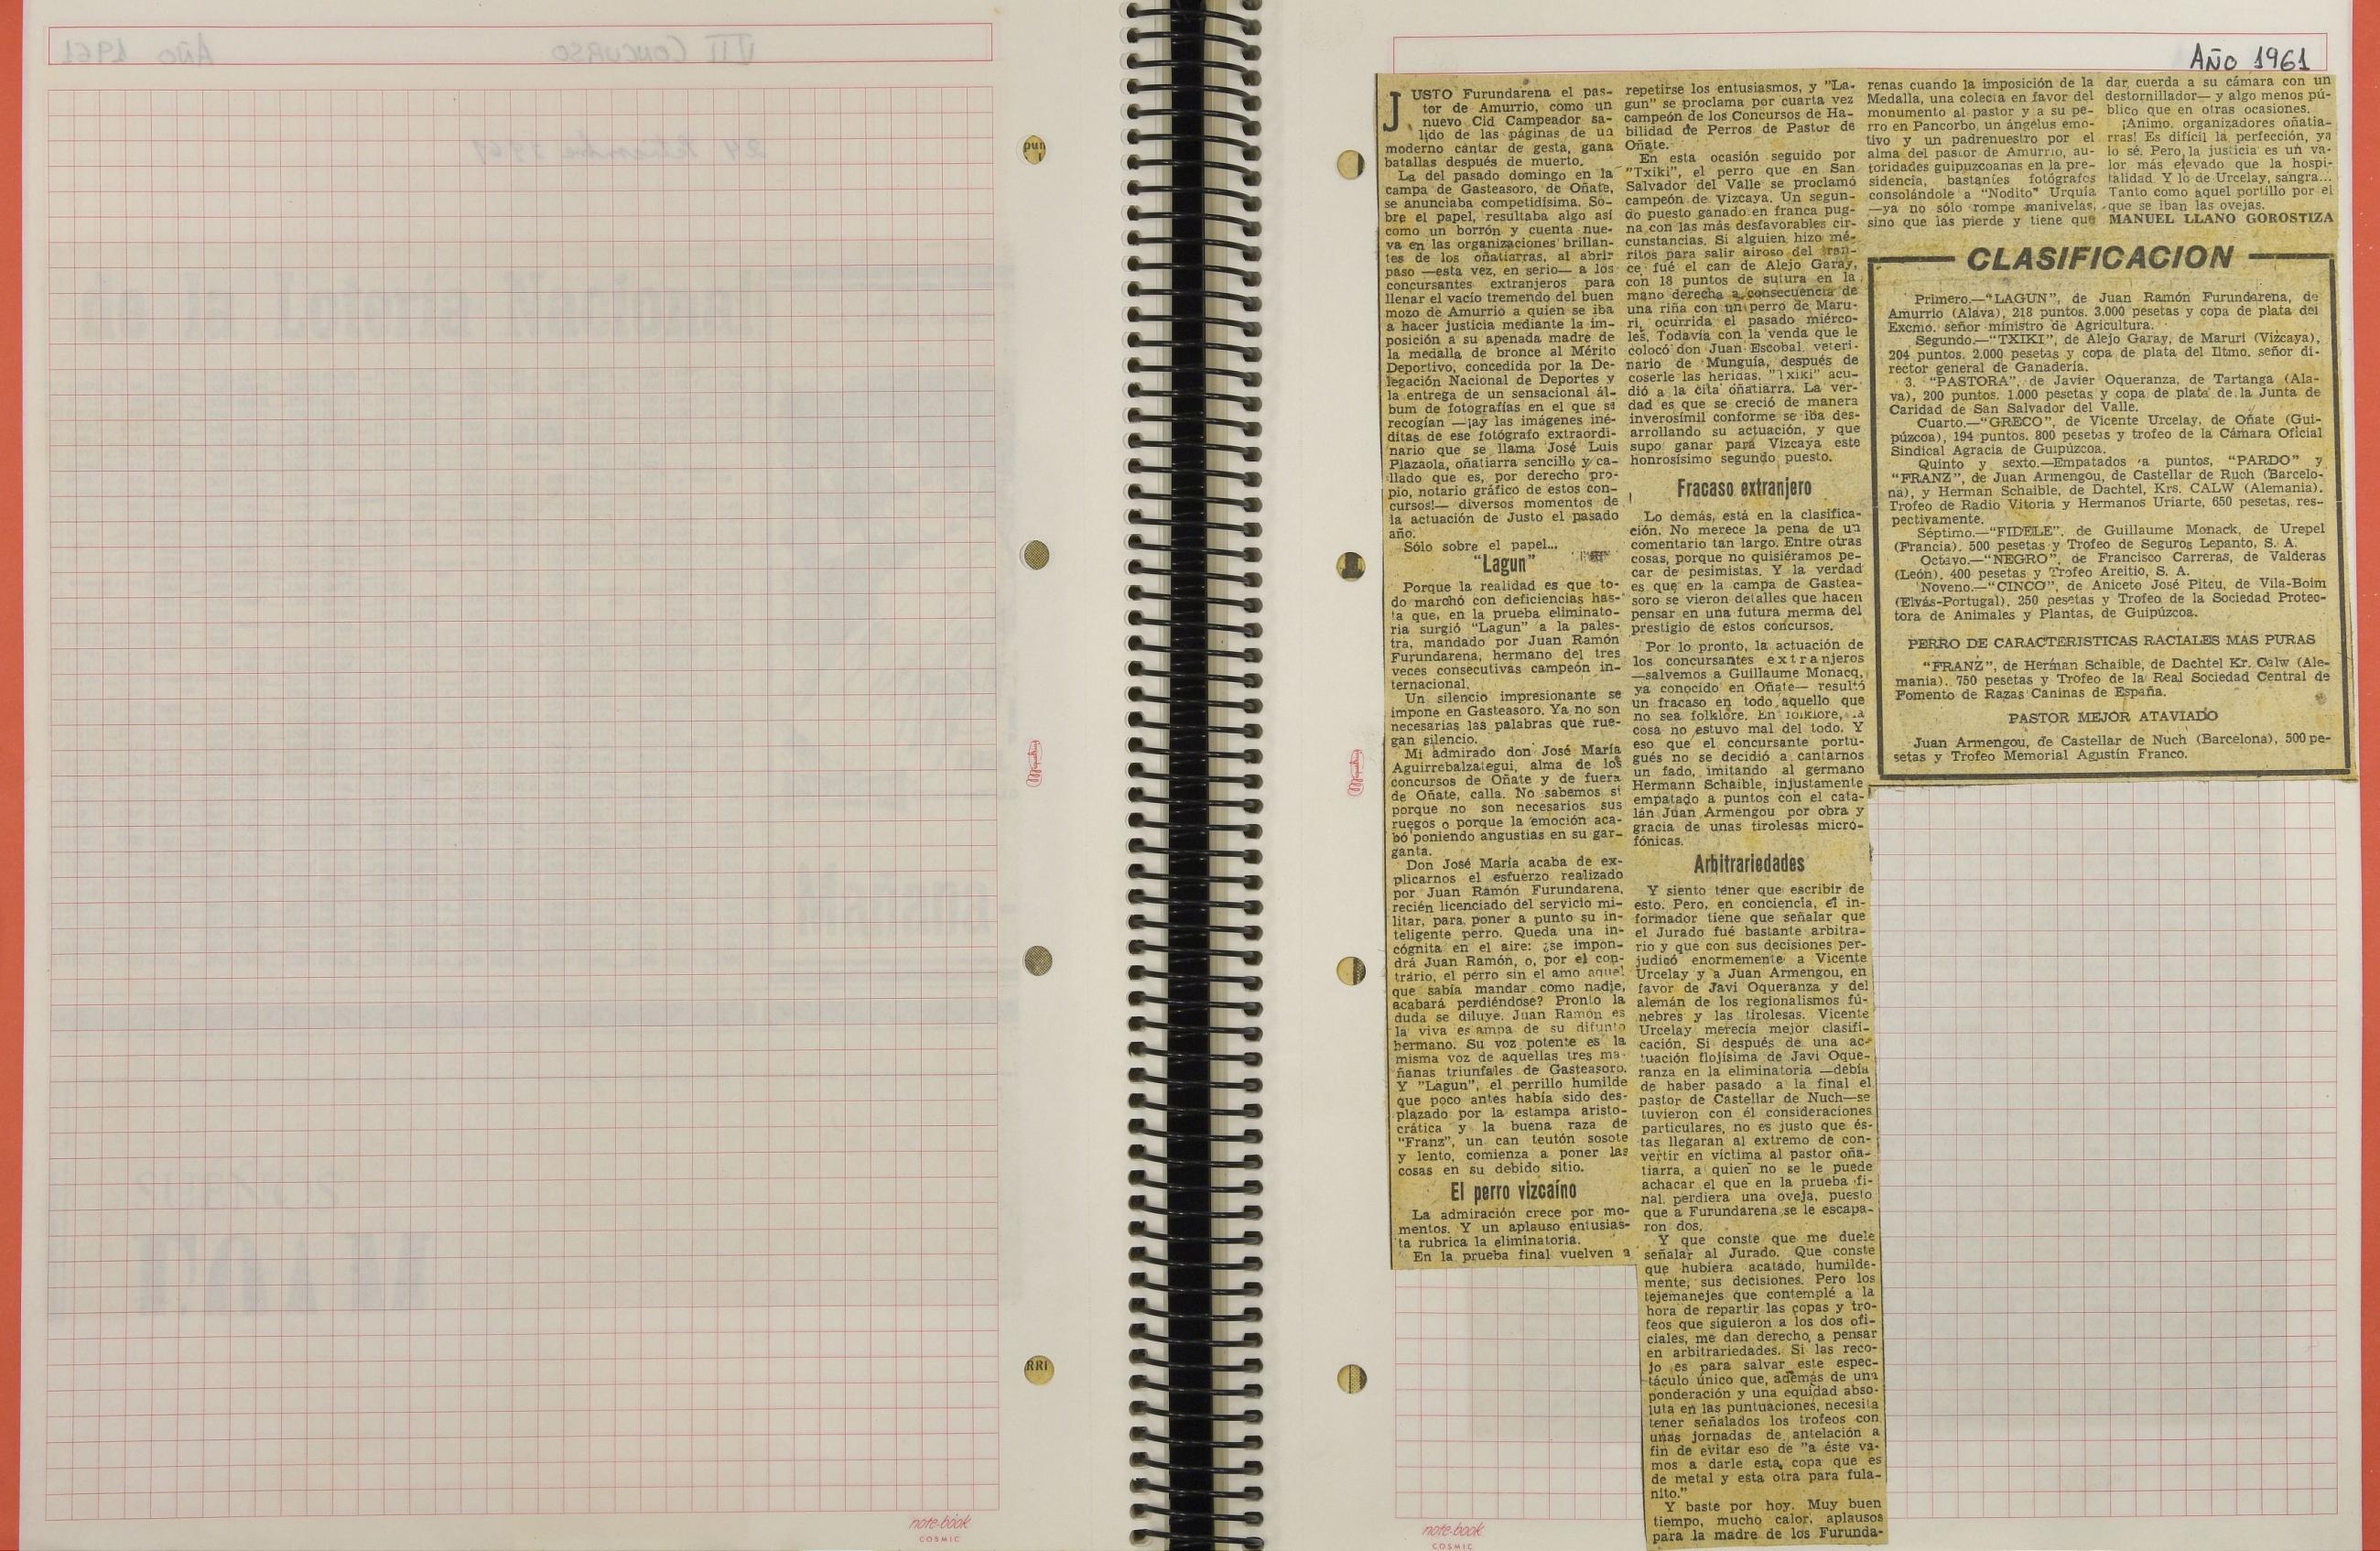 AÑO 1961
JUSTO Furundarena el pas-
tor de Amurrio, como un
nuevo Cid Campeador sa-
lido de las páginas de un
moderno cantar de gesta, gana
batallas después de muerto.
La del pasado domingo en la
campa de Gasteasoro, de Oñate,
se anunciaba competidísima. So-
bre el papel, resultaba algo así
como un borrón y cuenta nue-
va en las organizaciones brillan-
tes de los oñatiarras, al abrir
paso —esta vez, en serio— a los
concursantes extranjeros para
llenar el vacío tremendo del buen
mozo de Amurrio a quien se iba
a hacer justicia mediante la im-
posición a su apenada madre de
la medalla de bronce al Mérito
Deportivo, concedida por la De-
legación Nacional de Deportes y
la entrega de un sensacional ál-
bum de fotografías en el que se
recogían —¡ay las imágenes iné-
ditas de ese fotógrafo extraordi-
nario que se llama José Luis
Plazaola, oñatiarra sencillo y ca-
llado que es, por derecho pro-
pio, notario gráfico de estos con-
cursos!— diversos momentos de
la actuación de Justo el pasado
año.
Sólo sobre el papel...
"Lagun"
Porque la realidad es que to-
do marchó con deficiencias has-
ta que, en la prueba eliminato-
ria surgió "Lagun" a la pales-
tra, mandado por Juan Ramón
Furundarena, hermano del tres
veces consecutivas campeón in-
ternacional.
Un silencio impresionante se
impone en Gasteasoro. Ya no son
necesarias las palabras que rue-
gan silencio.
Mi admirado don José María
Aguirrebalzategui, alma de los
concursos de Oñate y de fuera
de Oñate, calla. No sabemos si
porque no son necesarios sus
ruegos o porque la emoción aca-
bó poniendo angustias en su gar-
ganta.
Don José María acaba de ex-
plicarnos el esfuerzo realizado
por Juan Ramón Furundarena,
recién licenciado del servicio mi-
litar, para poner a punto su in-
teligente perro. Queda una in-
cógnita en el aire: ¿se impon-
drá Juan Ramón, o, por el con-
trario, el perro sin el amo aquel
que sabía mandar como nadie,
acabará perdiéndose? Pronto la
duda se diluye. Juan Ramón es
la viva es ampa de su difunto
hermano. Su voz potente es la
misma voz de aquellas tres ma-
ñanas triunfales de Gasteasoro.
Y "Lagun", el perrillo humilde
que poco antes había sido des-
plazado por la estampa aristo-
crática y la buena raza de
"Franz", un can teutón sosote
y lento, comienza a poner las
cosas en su debido sitio.
El perro vizcaíno
La admiración crece por mo-
mentos. Y un aplauso entusias-
ta rubrica la eliminatoria.
En la prueba final vuelven a
repetirse los entusiasmos, y "La-
gun" se proclama por cuarta vez
campeón de los Concursos de Ha-
bilidad de Perros de Pastor de
Oñate.
En esta ocasión seguido por
"Txiki", el perro que en San
Salvador del Valle se proclamó
campeón de Vizcaya. Un segun-
do puesto ganado en franca pug-
na con las más desfavorables cir-
cunstancias. Si alguien hizo mé-
ritos para salir airoso del tran-
ce fué el can de Alejo Garay,
con 18 puntos de sutura en la
mano derecha a consecuencia de
una riña con un perro de Maru-
ri, ocurrida el pasado miérco-
les. Todavía con la venda que le
colocó don Juan Escobal, veteri-
nario de Munguía, después de
coserle las heridas, "Txiki" acu-
dió a la cita oñatiarra. La ver-
dad es que se creció de manera
inverosímil conforme se iba des-
arrollando su actuación, y que
supo ganar para Vizcaya este
honrosísimo segundo puesto.
Fracaso extranjero
Lo demás, está en la clasifica-
ción. No merece la pena de un
comentario tan largo. Entre otras
cosas, porque no quisiéramos pe-
car de pesimistas. Y la verdad
es que en la campa de Gastea-
soro se vieron detalles que hacen
pensar en una futura merma del
prestigio de estos concursos.
Por lo pronto, la actuación de
los concursantes extranjeros
—salvemos a Guillaume Monacq,
ya conocido en Oñate— resultó
un fracaso en todo aquello que
no sea folklore. En folklore, la
cosa no estuvo mal del todo. Y
eso que el concursante portu-
gués no se decidió a cantarnos
un fado, imitando al germano
Hermann Schaible, injustamente
empatado a puntos con el cata-
lán Juan Armengou por obra y
gracia de unas tirolesas micro-
fónicas.
Arbitrariedades
Y siento tener que escribir de
esto. Pero, en conciencia, el in-
formador tiene que señalar que
el Jurado fué bastante arbitra-
rio y que con sus decisiones per-
judicó enormemente a Vicente
Urcelay y a Juan Armengou, en
favor de Javi Oqueranza y del
alemán de los regionalismos fú-
nebres y las tirolesas. Vicente
Urcelay merecía mejor clasifi-
cación. Si después de una ac-
tuación flojísima de Javi Oque-
ranza en la eliminatoria —debía
de haber pasado a la final el
pastor de Castellar de Nuch—se
tuvieron con él consideraciones
particulares, no es justo que és-
tas llegaran al extremo de con-
vertir en víctima al pastor oña-
tiarra, a quien no se le puede
achacar el que en la prueba fi-
nal perdiera una oveja, puesto
que a Furundarena se le escapa-
ron dos.
Y que conste que me duele
señalar al Jurado. Que conste
que hubiera acatado, humilde-
mente, sus decisiones. Pero los
tejemanejes que contemplé a la
hora de repartir las copas y tro-
feos que siguieron a los dos ofi-
ciales, me dan derecho a pensar
en arbitrariedades. Si las reco-
jo es para salvar este espec-
táculo único que, además de una
ponderación y una equidad abso-
luta en las puntuaciones, necesita
tener señalados los trofeos con
unas jornadas de antelación a
fin de evitar eso de "a éste va-
mos a darle esta copa que es
de metal y esta otra para fula-
nito."
Y baste por hoy. Muy buen
tiempo, mucho calor, aplausos
para la madre de los Furunda-
renas cuando la imposición de la
Medalla, una colecta en favor del
monumento al pastor y a su pe-
rro en Pancorbo, un ángelus emo-
tivo y un padrenuestro por el
alma del pastor de Amurrio, au-
toridades guipuzcoanas en la pre-
sidencia, bastantes fotógrafos
consolándole a "Nodito" Urquía
—ya no sólo rompe manivelas,
sino que las pierde y tiene que
dar cuerda a su cámara con un
destornillador— y algo menos pú-
blico que en otras ocasiones.
¡Animo, organizadores oñatia-
rras! Es difícil la perfección, ya
lo sé. Pero la justicia es un va-
lor más elevado que la hospi-
talidad Y lo de Urcelay, sangra...
Tanto como aquel portillo por el
que se iban las ovejas.
MANUEL LLANO GOROSTIZA
CLASIFICACION
Primero.—"LAGUN", de Juan Ramón Furundarena, de
Amurrio (Alava), 218 puntos. 3.000 pesetas y copa de plata del
Excmo. señor ministro de Agricultura.
Segundo.—"TXIKI", de Alejo Garay, de Maruri (Vizcaya),
204 puntos. 2.000 pesetas y copa de plata del Iltmo. señor di-
rector general de Ganadería.
3. "PASTORA", de Javier Oqueranza, de Tartanga (Ala-
va), 200 puntos. 1.000 pesetas y copa de plata de la Junta de
Caridad de San Salvador del Valle.
Cuarto.—"GRECO", de Vicente Urcelay, de Oñate (Gui-
púzcoa), 194 puntos. 800 pesetas y trofeo de la Cámara Oficial
Sindical Agracia de Guipúzcoa.
Quinto y sexto.—Empatados a puntos, "PARDO" y
"FRANZ", de Juan Armengou, de Castellar de Ruch (Barcelo-
na), y Herman Schaible, de Dachtel, Krs. CALW (Alemania).
Trofeo de Radio Vitoria y Hermanos Uriarte, 650 pesetas, res-
pectivamente.
Séptimo.—"FIDELE", de Guillaume Monack, de Urepel
(Francia). 500 pesetas y Trofeo de Seguros Lepanto, S. A.
Octavo.—"NEGRO", de Francisco Carreras, de Valderas
(León). 400 pesetas y Trofeo Areitio, S. A.
Noveno.—"CINCO", de Aniceto José Piteu, de Vila-Boim
(Elvás-Portugal). 250 pesetas y Trofeo de la Sociedad Protec-
tora de Animales y Plantas, de Guipúzcoa.
PERRO DE CARACTERISTICAS RACIALES MAS PURAS
"FRANZ", de Herman Schaible, de Dachtel Kr. Calw (Ale-
mania). 750 pesetas y Trofeo de la Real Sociedad Central de
Fomento de Razas Caninas de España.
PASTOR MEJOR ATAVIADO
Juan Armengou, de Castellar de Nuch (Barcelona), 500 pe-
setas y Trofeo Memorial Agustín Franco.
note-book
COSMIC
note-book
COSMIC